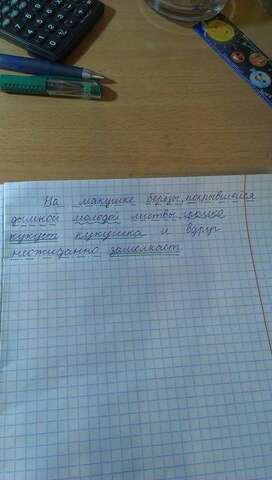 На макушке берёзы, покрывшейся
дымкой молодой листвы, громко
кукует кукушка и вдруг
неожиданно замолкает